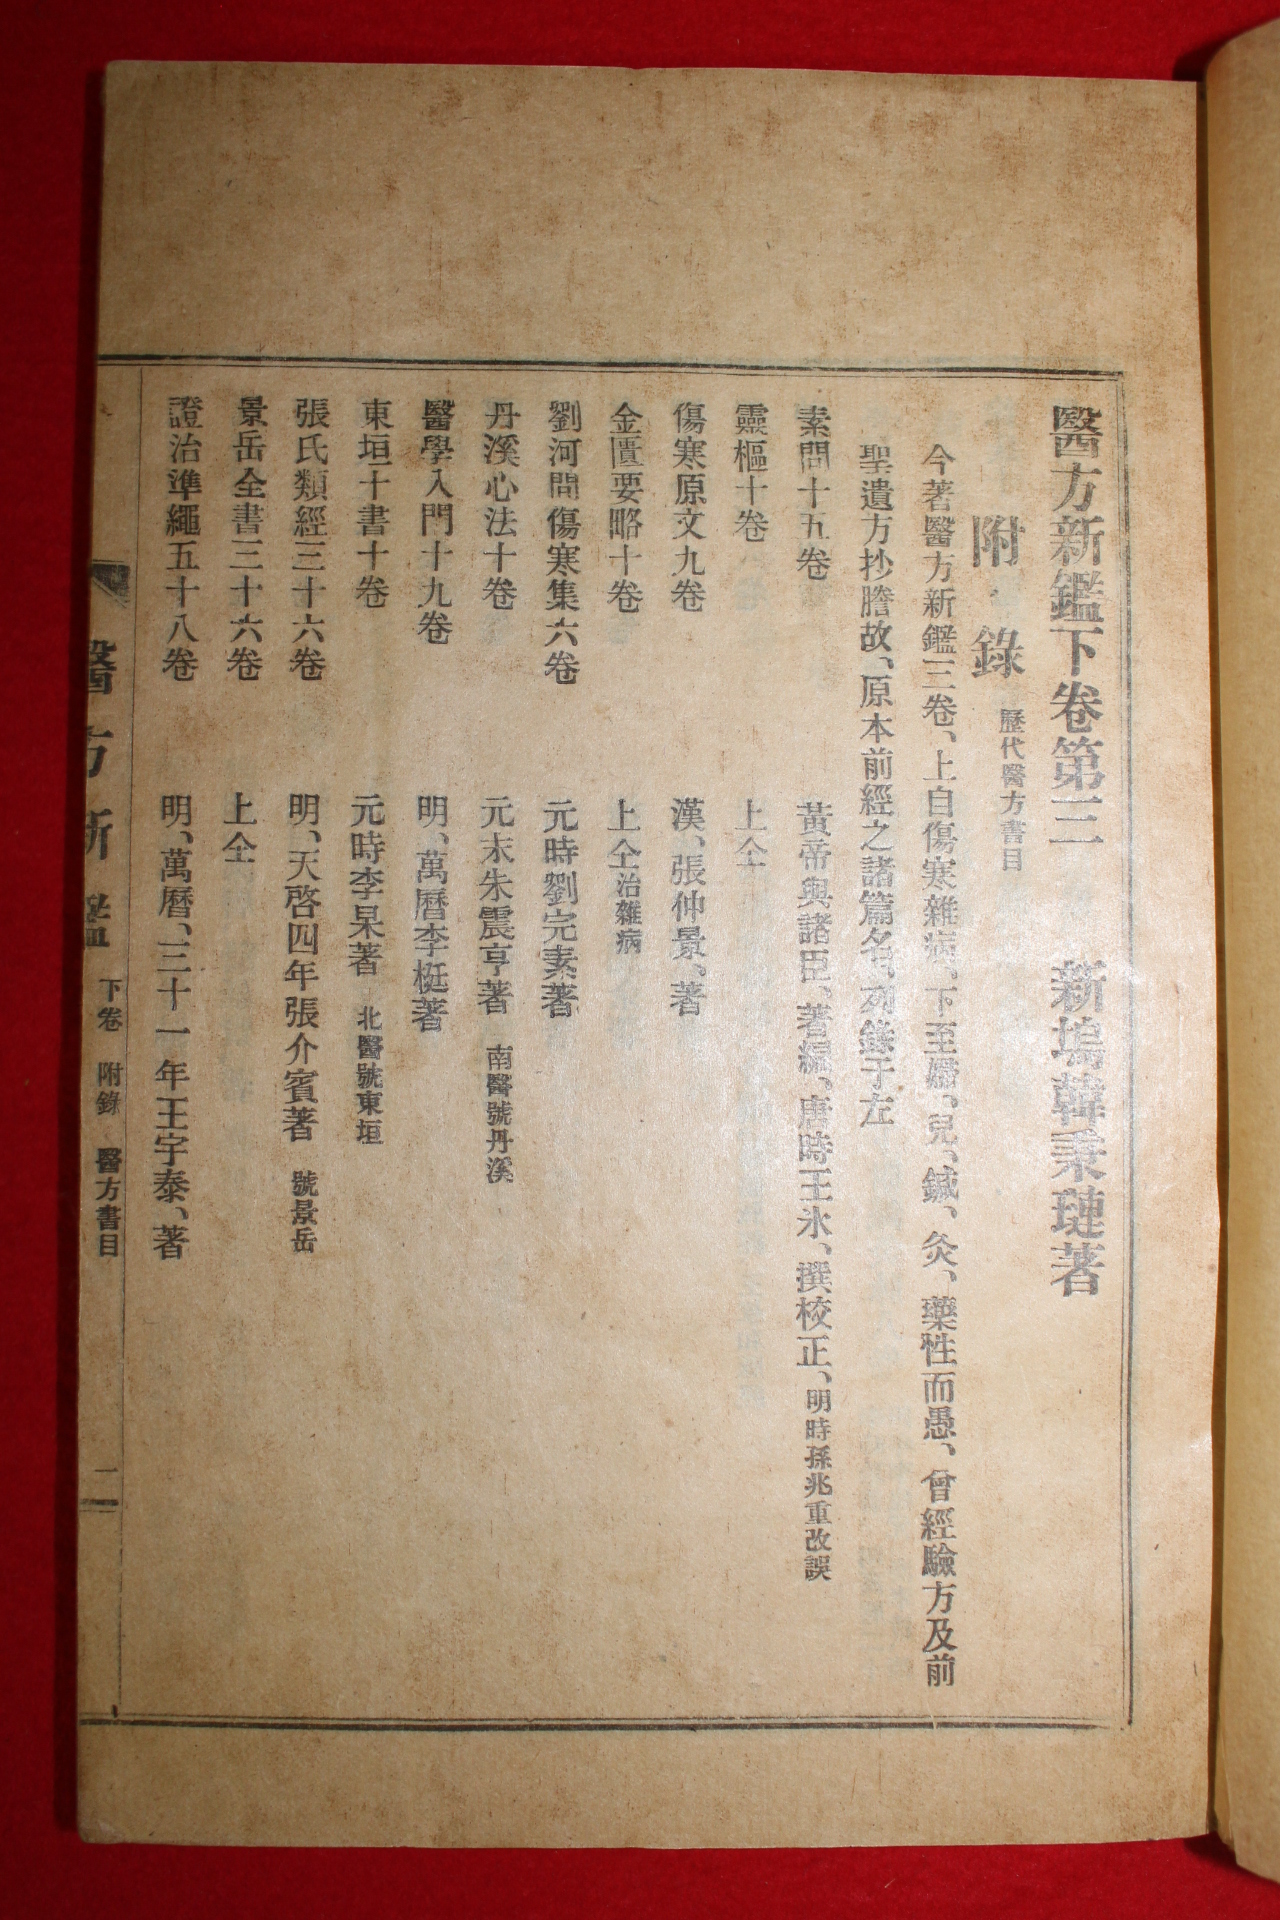 醫方新鑑下卷第三　新塢韓秉璉著
附錄　歷代醫方書目
今著醫方新鑑三卷、上自傷寒雜病、下至婦、兒、鍼、灸、藥性而愚、曾經驗方及前
聖遺方抄謄故、原本前經之諸篇名、列錄于左
素問十五卷　黃帝與諸臣、著編、唐時王氷、撰校正、明時孫兆重改誤
靈樞十卷　上仝
傷寒原文九卷　漢、張仲景、著
金匱要略十卷　上仝治雜病
劉河問傷寒集六卷　元時劉完素著
丹溪心法十卷　元末朱震亨著　南醫號丹溪
醫學入門十九卷　明、萬曆李梴著
東垣十書十卷　元時李杲著　北醫號東垣
張氏類經三十六卷　明、天啓四年張介賓著　號景岳
景岳全書三十六卷　上仝
證治準繩五十八卷　明、萬曆、三十一年王宇泰、著
醫方新鑑　下卷　附錄　醫方書目　一